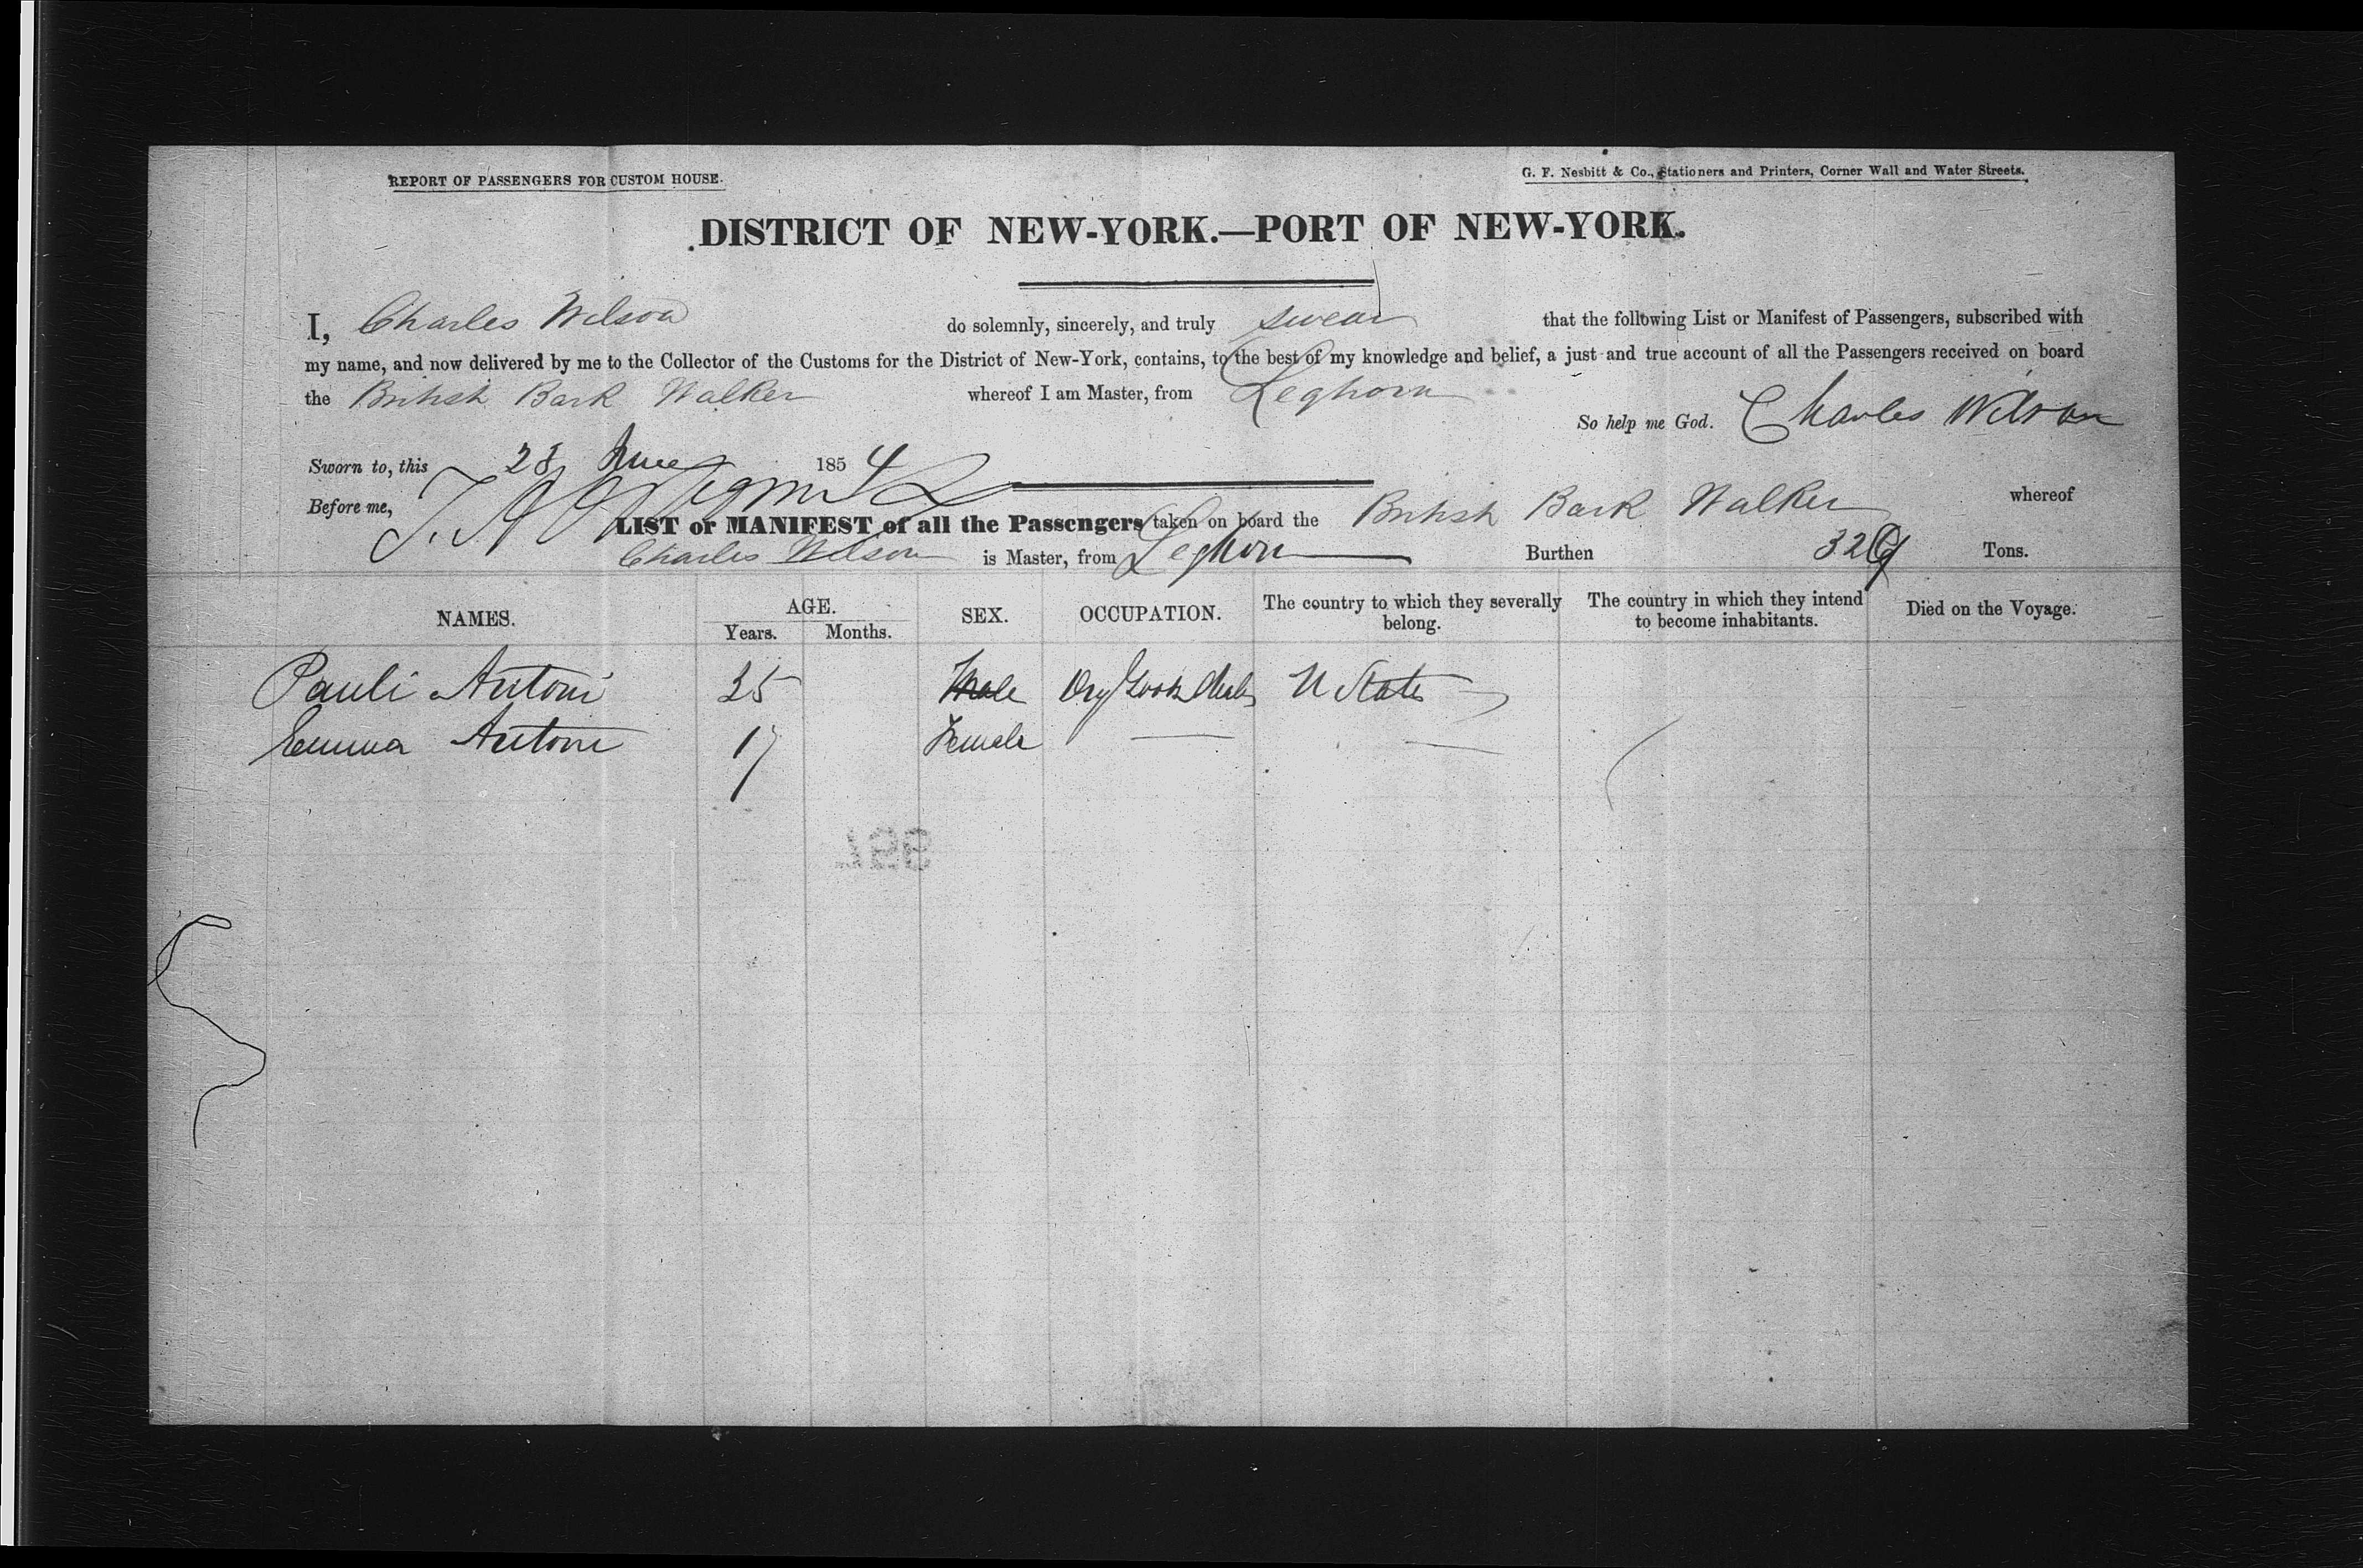 REPORT OF PASSENGERS FOR CUSTOM HOUSE.
G. F. Nesbitt & Co., Stationers and Printers, Corner Wall and Water Streets.
DISTRICT OF NEW-YORK.—PORT OF NEW-YORK.
I, Charles Wilson do solemnly, sincerely, and truly swear that the following List or Manifest of Passengers, subscribed with
my name, and now delivered by me to the Collector of the Customs for the District of New-York, contains, to the best of my knowledge and belief, a just and true account of all the Passengers received on board
the British Bark Walker whereof I am Master, from Leghorn
So help me God. Charles Wilson
Sworn to, this 28 June 1854
Before me,
LIST or MANIFEST of all the Passengers taken on board the British Bark Walker whereof
Charles Wilson is Master, from Leghorn Burthen Tons.
NAMES. AGE. Years. Months. SEX. OCCUPATION. The country to which they severally belong. The country in which they intend to become inhabitants. Died on the Voyage.
Pauli Antoni 35 Male Dry Goods U States
Emma Antoni 17 Female — —